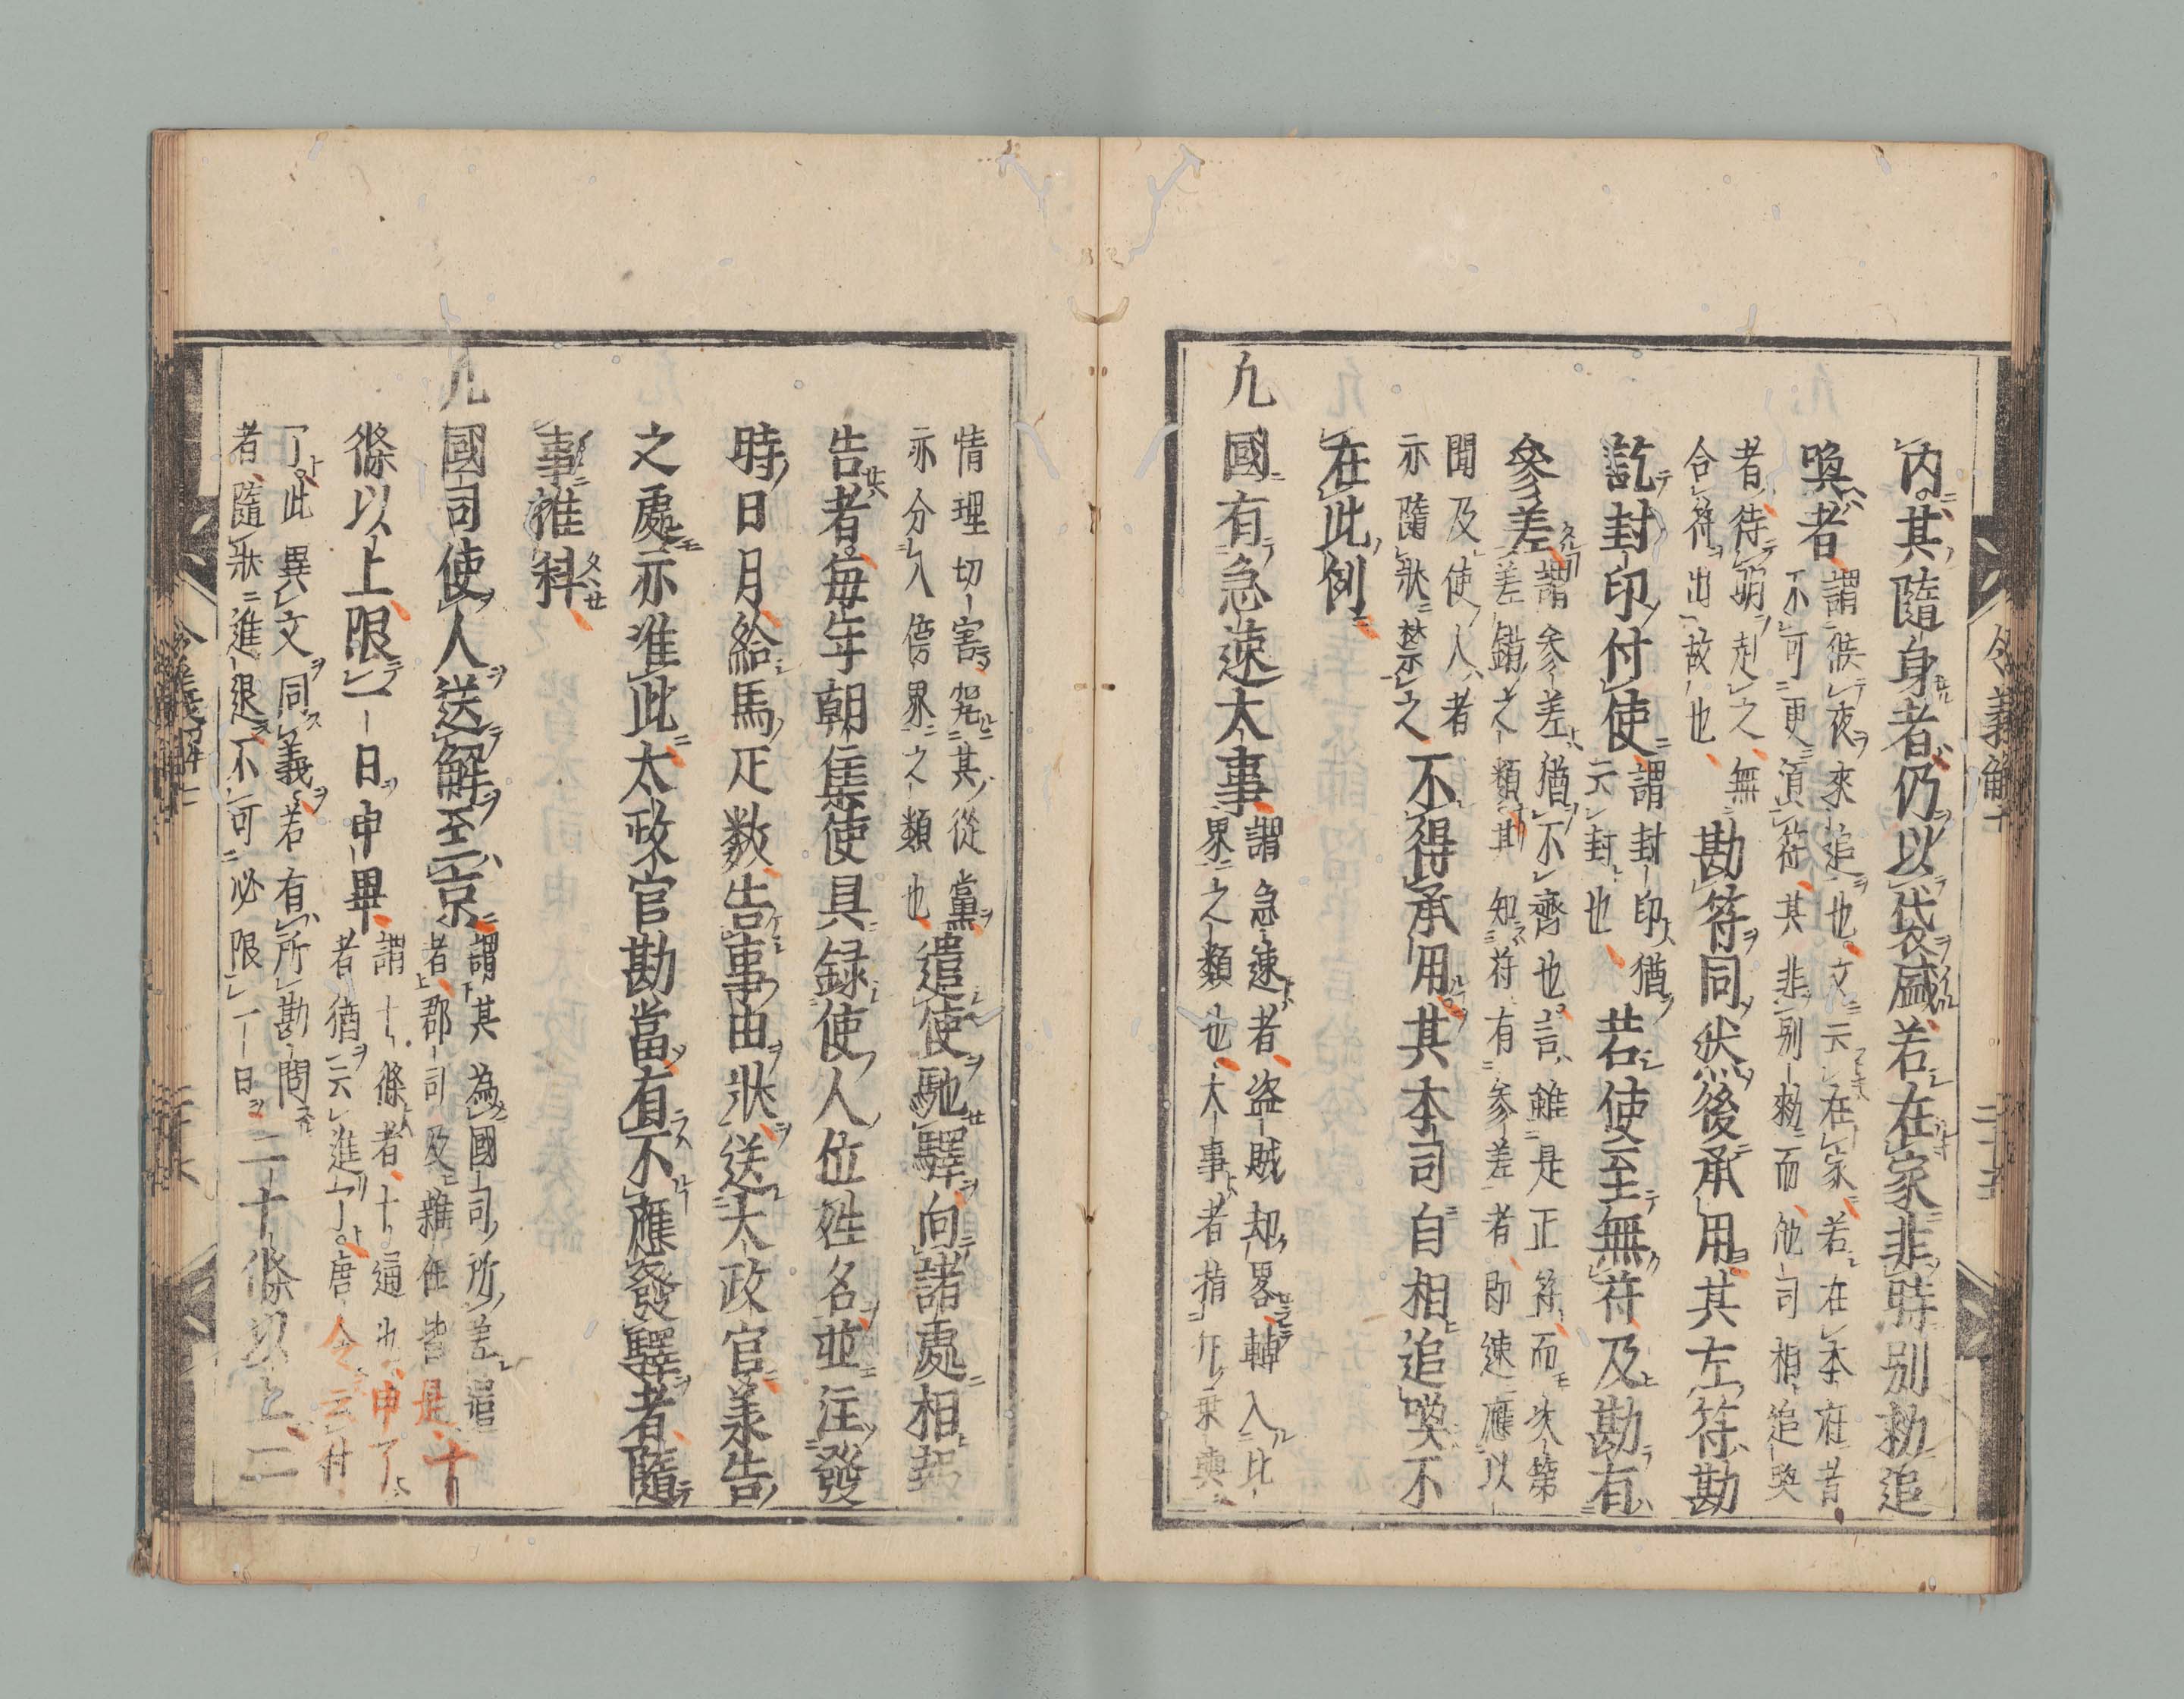 内其隨身者仍以袋盛若在家非時別勅追
喚者
謂候夜來追也文云在家若在本府昔
不可更湏符其非別勅而他司相追喚
者待明赴之無
合符出故也
勘符同然後承用其左符勘
訖封印付使
謂封印猶
云封也
若使至無符及勘有
參差
謂參差猶不齊也言雖是正符而次第
差錯之類其知符有參差者即速應以
聞及使人者
亦隨狀禁之
不得承用其本司自相追喚不
在此例
凢國有急速大事
謂急速者盜賊却畧轉入比
界之類也大事者指斥乗輿
情理切害
其從黨
亦分入傍界之類也
遣使馳驛向諸處相
告者每年朝集使具録使人位姓名並注發
時日月給馬疋数告事由狀送太政官羕告
之處亦准此太政官勘當有不應發驛者隨
事推科
凢國司使人送解至京
謂其為國司所差遣
者郡司及雜任皆是
十
條以上限一日申畢
謂十條者十通也申了
者猶云進了唐令云付
了此異文同義若有所勘問
者隨狀進退不可必限一日
二十條以上二
令義解七
二十五